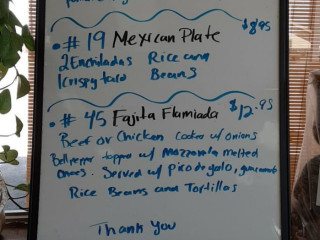 $8.95
#19 Mexican Plate
2 Enchiladas Rice and
1 crispy taco Beans
#45 Fajita Flamiada $12.95
Beef or Chicken cooked w/ onions
Bell pepper topped w/ Mozzarala melted
cheese. Served w/ pico de gallo, guacamole
Rice Beans and Tortillas
Thank You